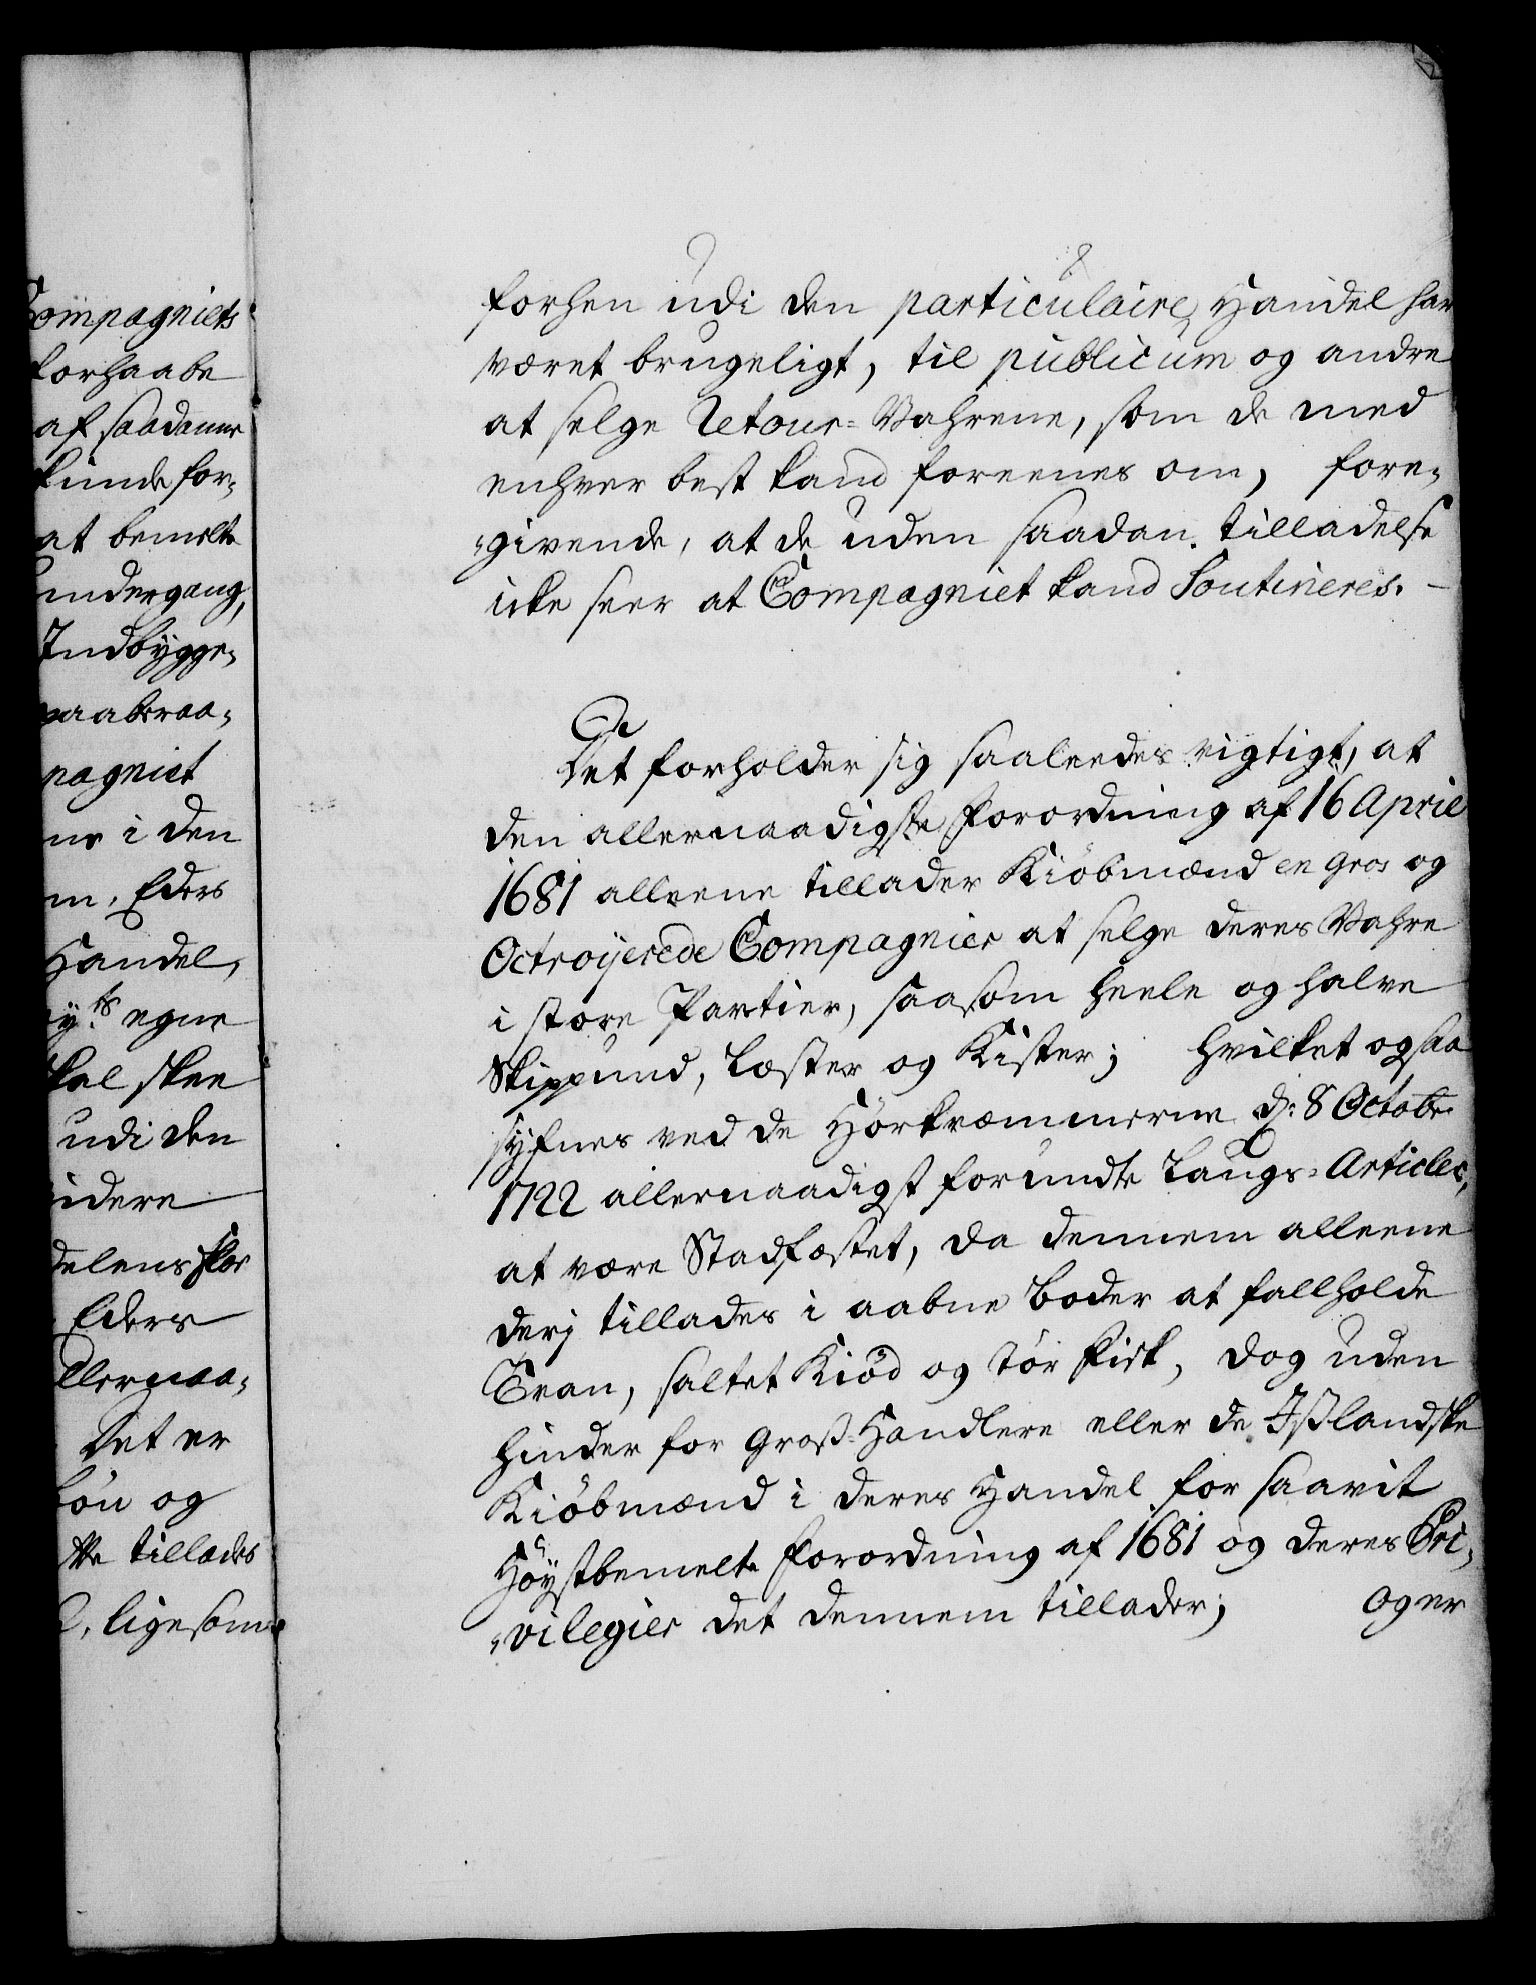 Compagniets
forhaabe
af saadanne
kunde for-
at bemelte
undergang,
Indbygge-
paaberaa-
pagniet
ns i den
m, Eders
Handel,
ÿ.ts egne
kal skee
udi den
idere
delens flor
Eders
llernaa-
Det er
bøn og
tte tillades
ligesom
forhen udi den particulaire Handel har
været brugeligt, til publicum og andre
at selge Retour-Vahrene, som de med
enhver best kand foreenes om, fore-
-givende, at de uden saadan tilladelse
icke seer at Compagniet kand Soutineres.
Det forholder sig saaleedes rigtigt, at
den allernaadigste Forordning af 16 April
1681 alleene tillader Kiöbmænd en Gros og
Octroijerede Compagnier at selge deres Vahre
i store Partier, saasom heele og halve
Skippund, Læster og Kister; hvilket ogsaa
syfnes ved de Hörkræmmerne d: 8 Octobr
1722 allernaadigst forundte Laugs-Articler,
at være Stadfæstet, da dennem alleene
derj tillades i aabne Boder at fallholde
Tran, saltet Kiöd og tör Fisk, dog uden
hinder for Gross-Handlere eller de Isslandske
Kiöbmænd i deres Handel for saavit
Höystbemelte Forordning af 1681 og deres Pri-
-vilegier det dennem tillader; og er